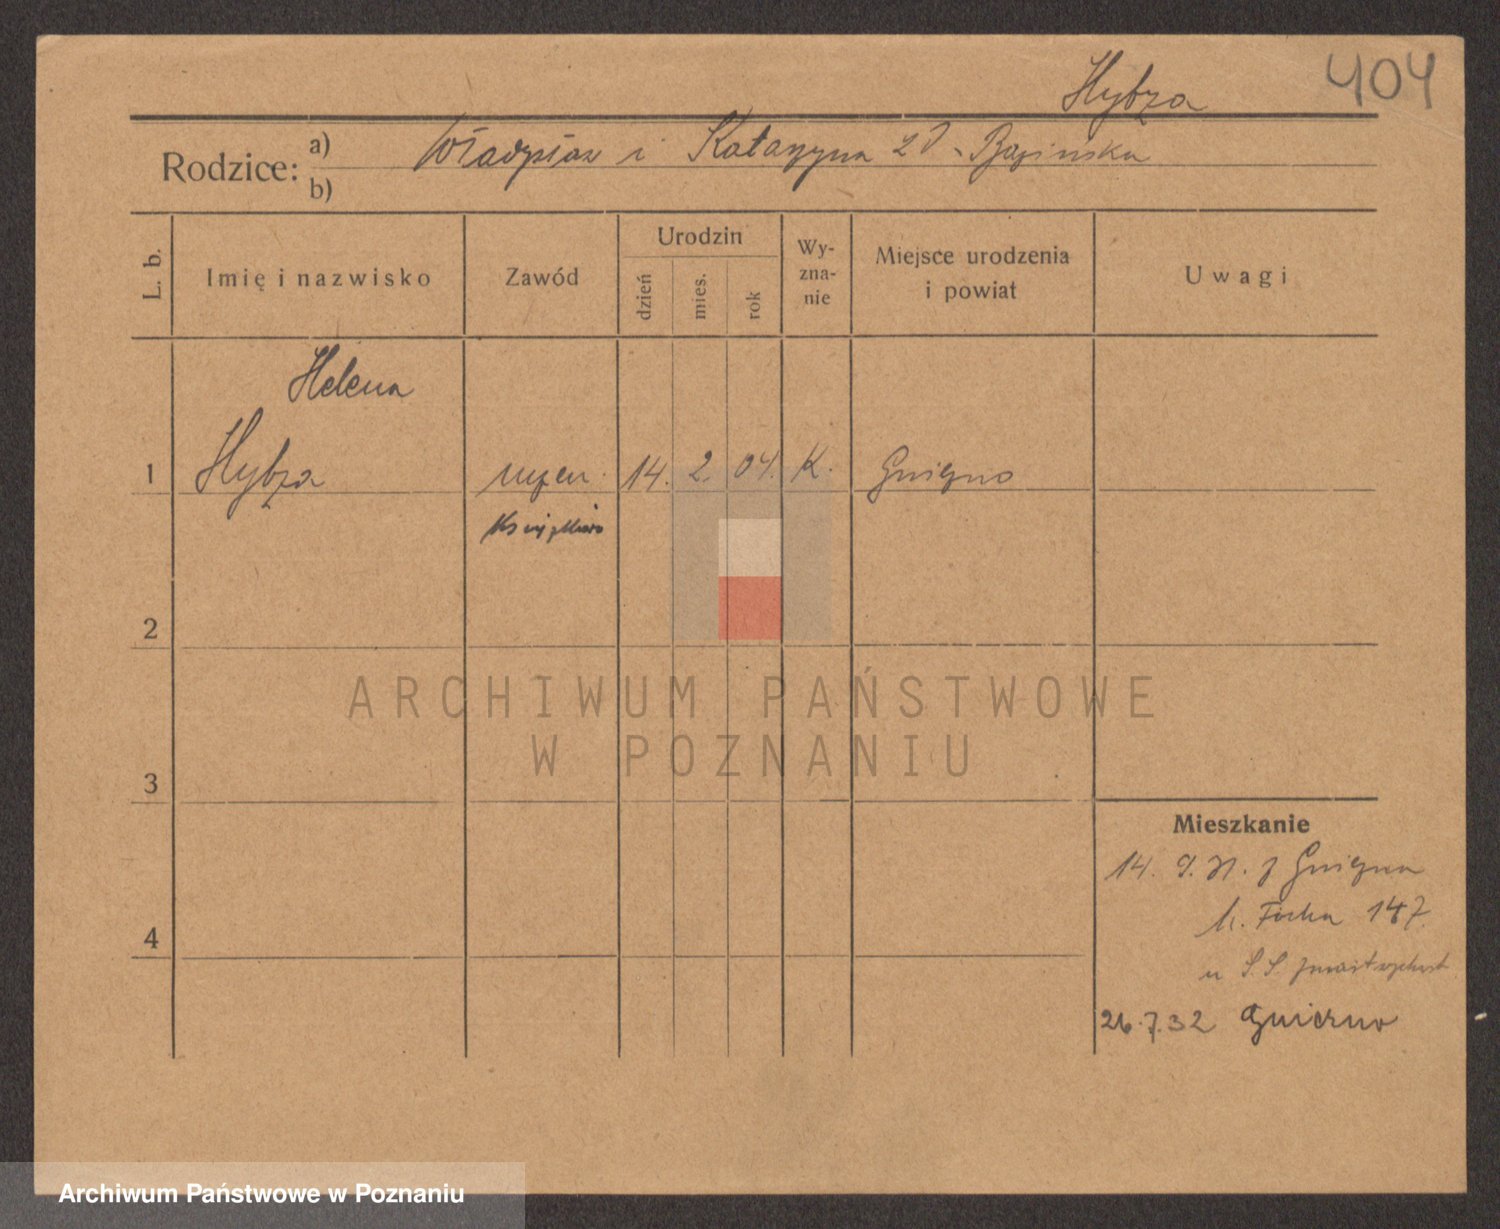 404
Hybza
Rodzice: a) Władysław i Katarzyna zd.
b)
L. b.
Imię i nazwisko
Zawód
Urodzin
dzień
mies.
rok
Wy-
zna-
nie
Miejsce urodzenia
i powiat
Uwagi
Helena
1 Hybza uczen. 14. 2. 04. K. Gniezno
2
3
4
Mieszkanie
14. 9. z Gniezna
Focha 147
u S.S.
26.7.32 Gniezno
ARCHIWUM PAŃSTWOWE
W POZNANIU
Archiwum Państwowe w Poznaniu